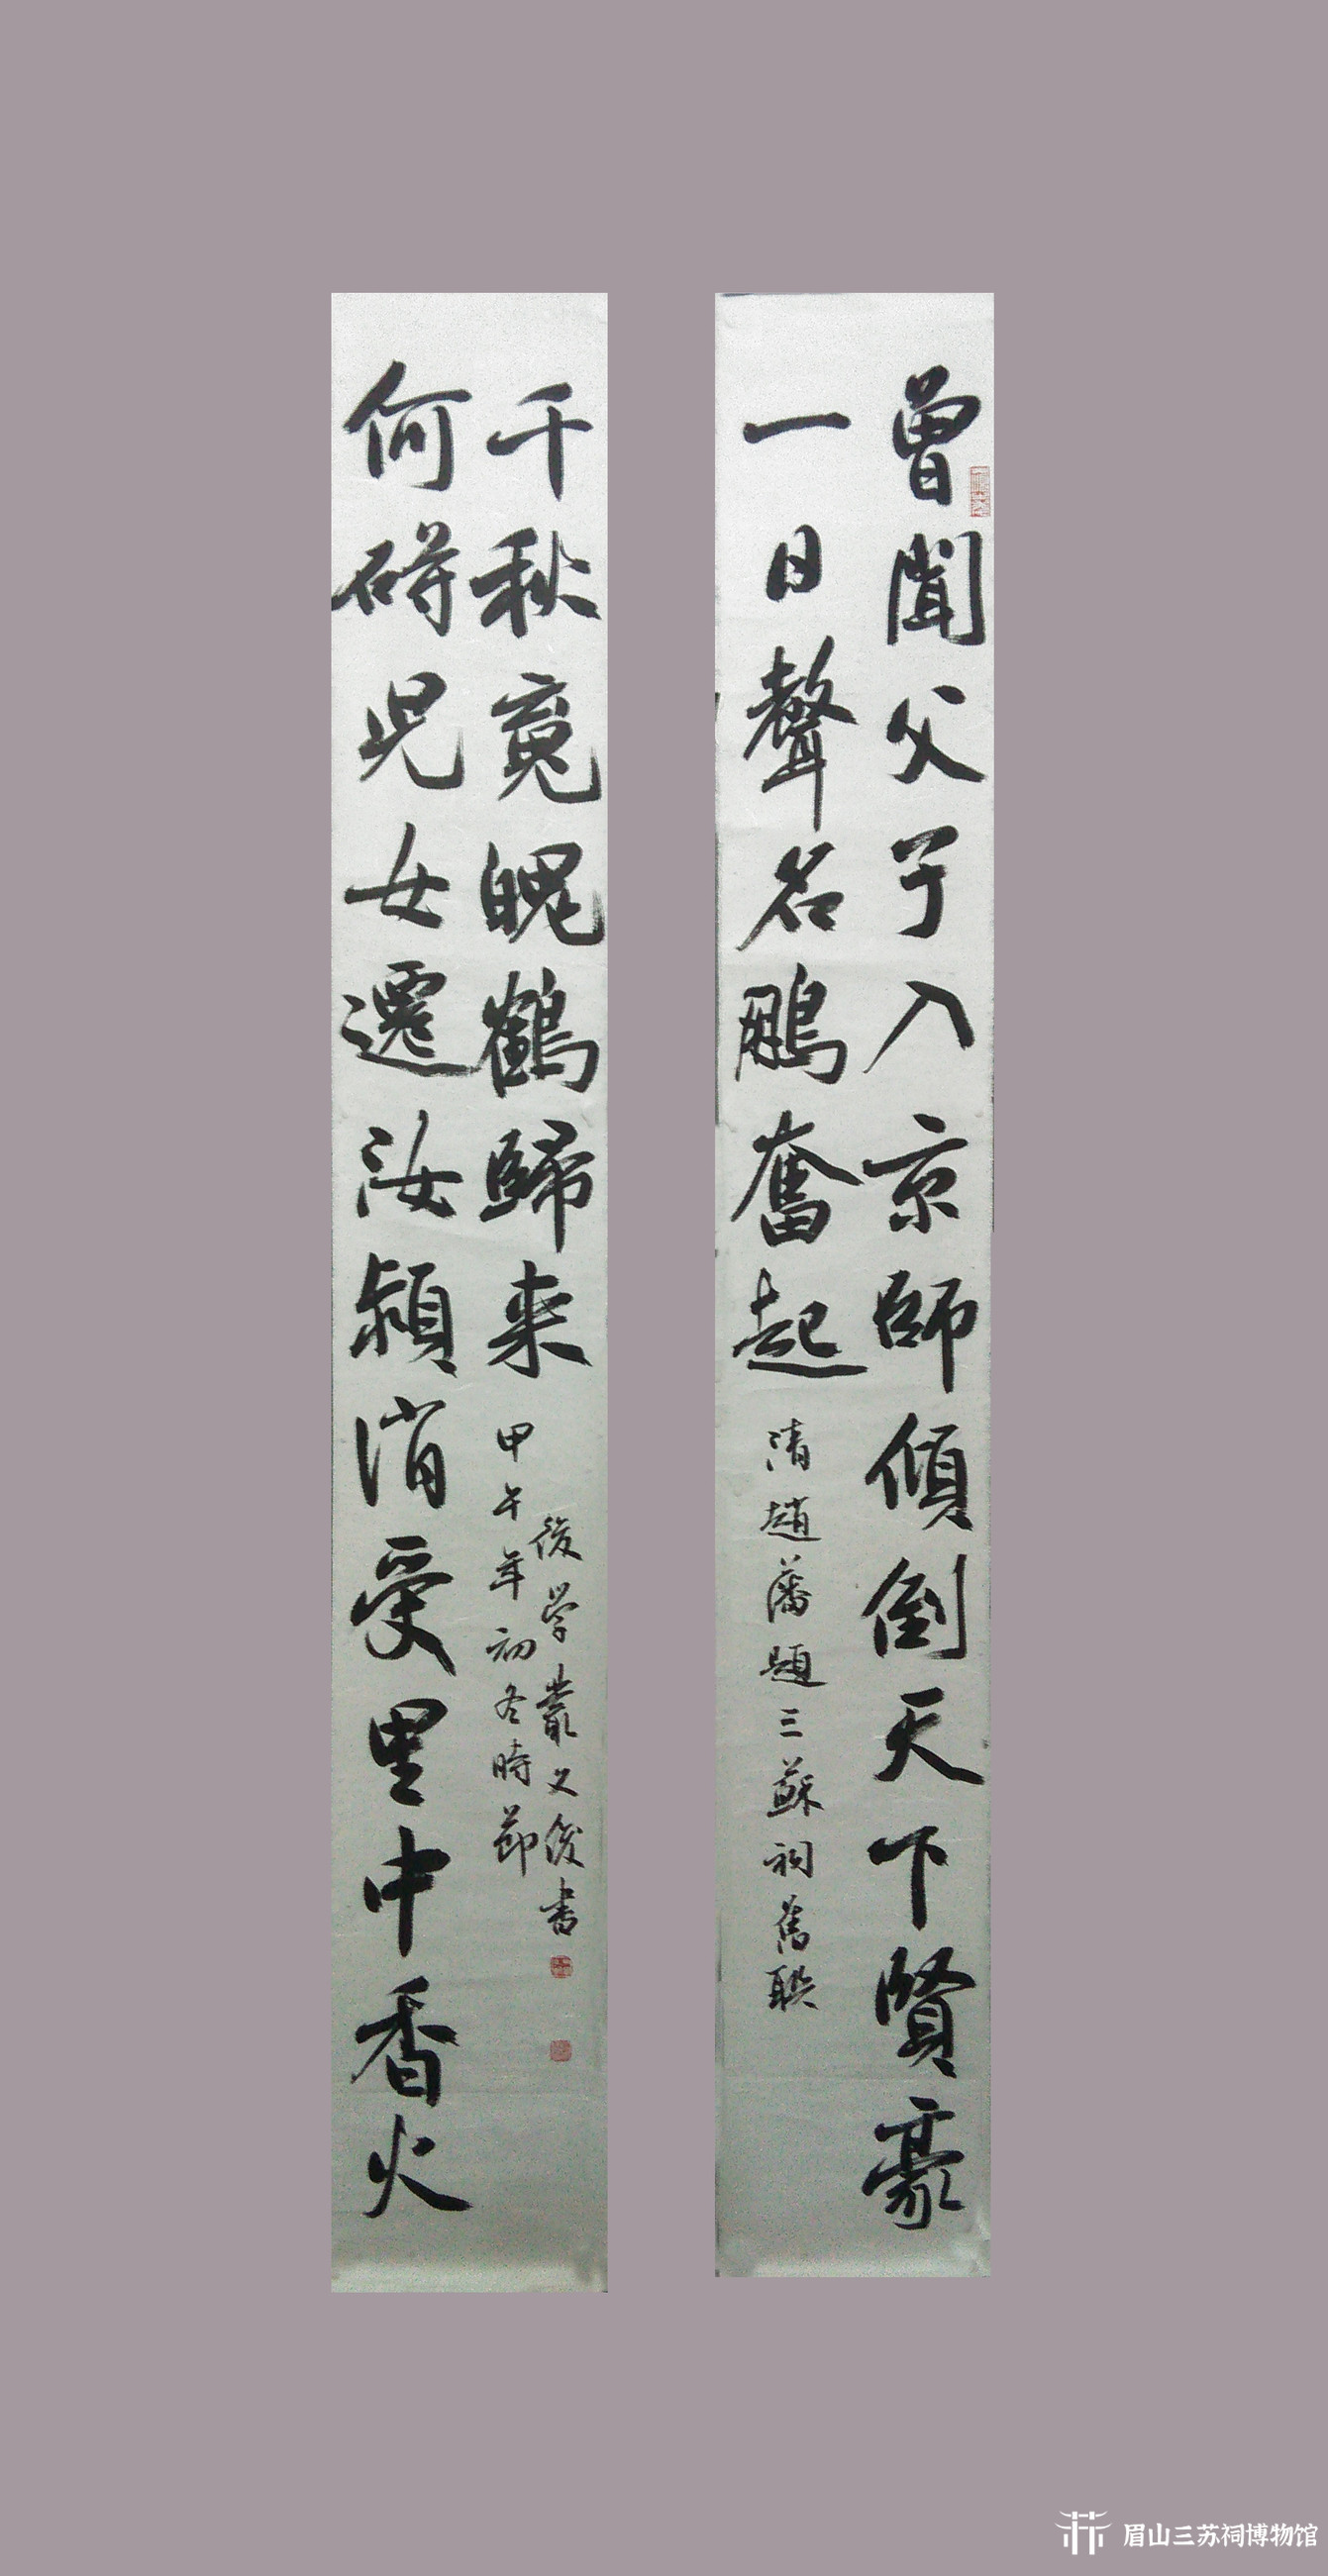 曾聞父子入京師傾倒天下賢豪
一日聲名鵬奮起
清趙藩題三蘇祠舊聯
何碍児女遷汝潁消受里中香火
千秋竟魄鶴歸来
甲午年初冬時節
後学叢文俊書
眉山三苏祠博物馆